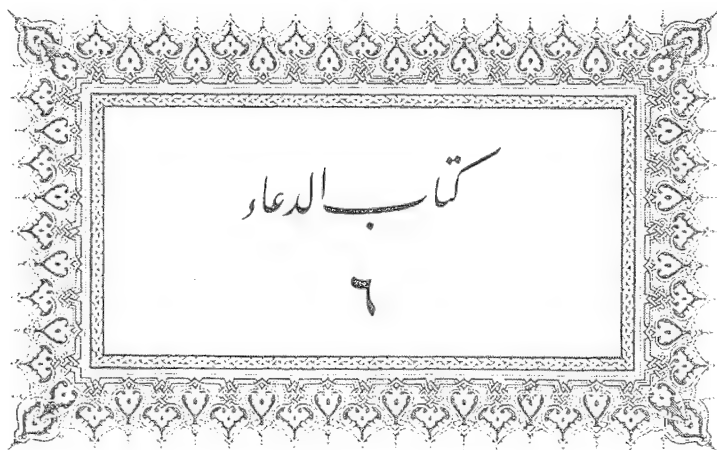 كتاب الدعاء
٦